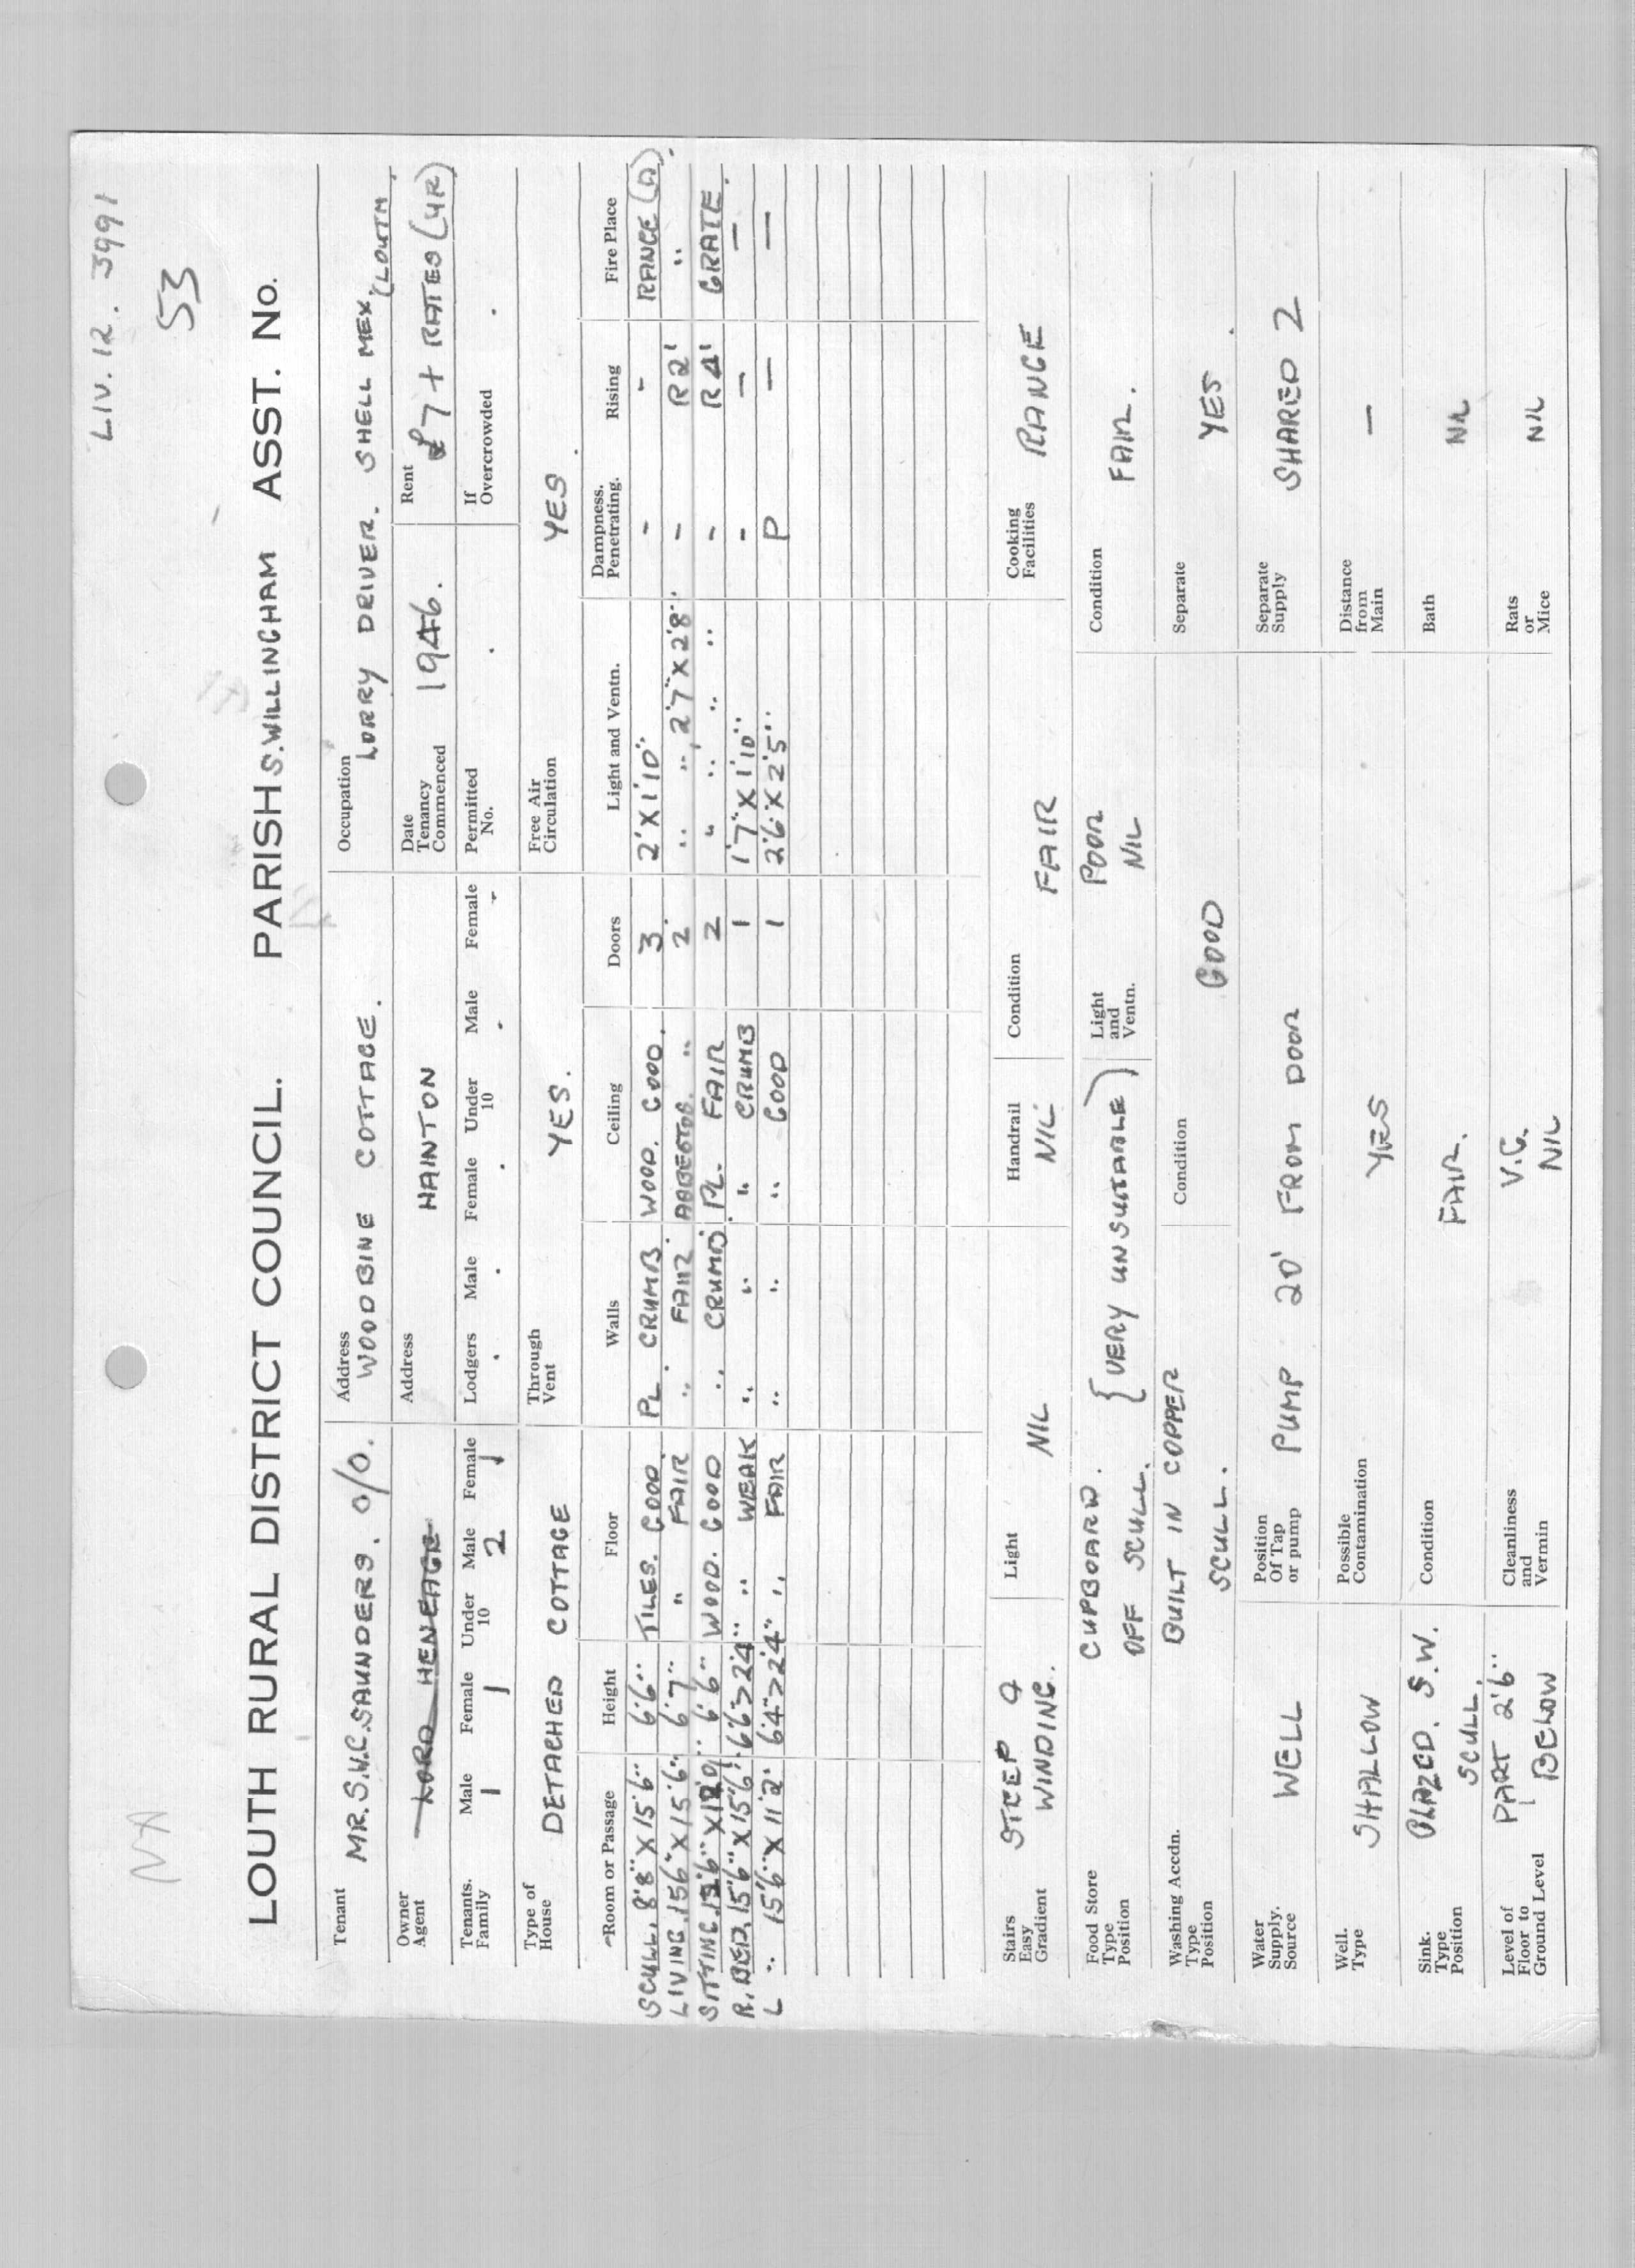 LIV. 12. 3991
NA
53
LOUTH RURAL DISTRICT COUNCIL. PARISH S. WILLINGHAM ASST. No.
Tenant MR. S.W.C. SAUNDERS. O/O. Address WOODBINE COTTAGE. Occupation LORRY DRIVER. SHELL MEX. (LOUTH
Owner Agent LORD HENEAGE Address HAINTON Date Tenancy Commenced 1946. Rent £7 + RATES (4R)
Tenants. Family Male 1 Female 1 Under 10 Male 2 Female 1 Lodgers . Male . Female . Under 10 Male - Female - Permitted No. . If Overcrowded .
Type of House DETACHED COTTAGE Through Vent YES. Free Air Circulation YES.
Room or Passage Height Floor Walls Ceiling Doors Light and Ventn. Dampness. Penetrating. Rising Fire Place
SCULL. 8'8" X 15'6" 6'6" TILES. GOOD. PL. CRUMB. WOOD. GOOD. 3 2' X 1'10" - - RANGE (D).
LIVING. 15'6" X 15'6" 6'7" " FAIR " FAIR. ABBESTOS. " 2. " ", 2'7" X 2'8" - R2' "
SITTING. 6'6" WOOD. GOOD " CRUMB. PL. FAIR 2 " " " " - R4' GRATE.
R. BED. 15'6" X 15'6" 6'6">2'4" " WEAK " " " CRUMB 1 1'7" X 1'10" - - —
L " 15'6" X 11'2" 6'4">2'4" " FAIR " " " GOOD 1 2'6" X 2'5" P — —
Stairs Easy Gradient STEEP & WINDING. Light NIL Handrail NIL Condition FAIR Cooking Facilities RANGE
Food Store Type Position CUPBOARD. OFF SCULL. {VERY UNSUITABLE) Light and Ventn. POOR NIL Condition FAIR.
Washing Accdn. Type Position BUILT IN COPPER SCULL. Condition GOOD Separate YES.
Water Supply. Source WELL Position Of Tap or pump PUMP 20' FROM DOOR Separate Supply SHARED 2
Well. Type SHALLOW Possible Contamination YES Distance from Main —
Sink. Type Position GLAZED. S.W. SCULL. Condition FAIR. Bath NIL
Level of Floor to Ground Level PART 2'6" BELOW Cleanliness and Vermin V.G. NIL Rats or Mice NIL